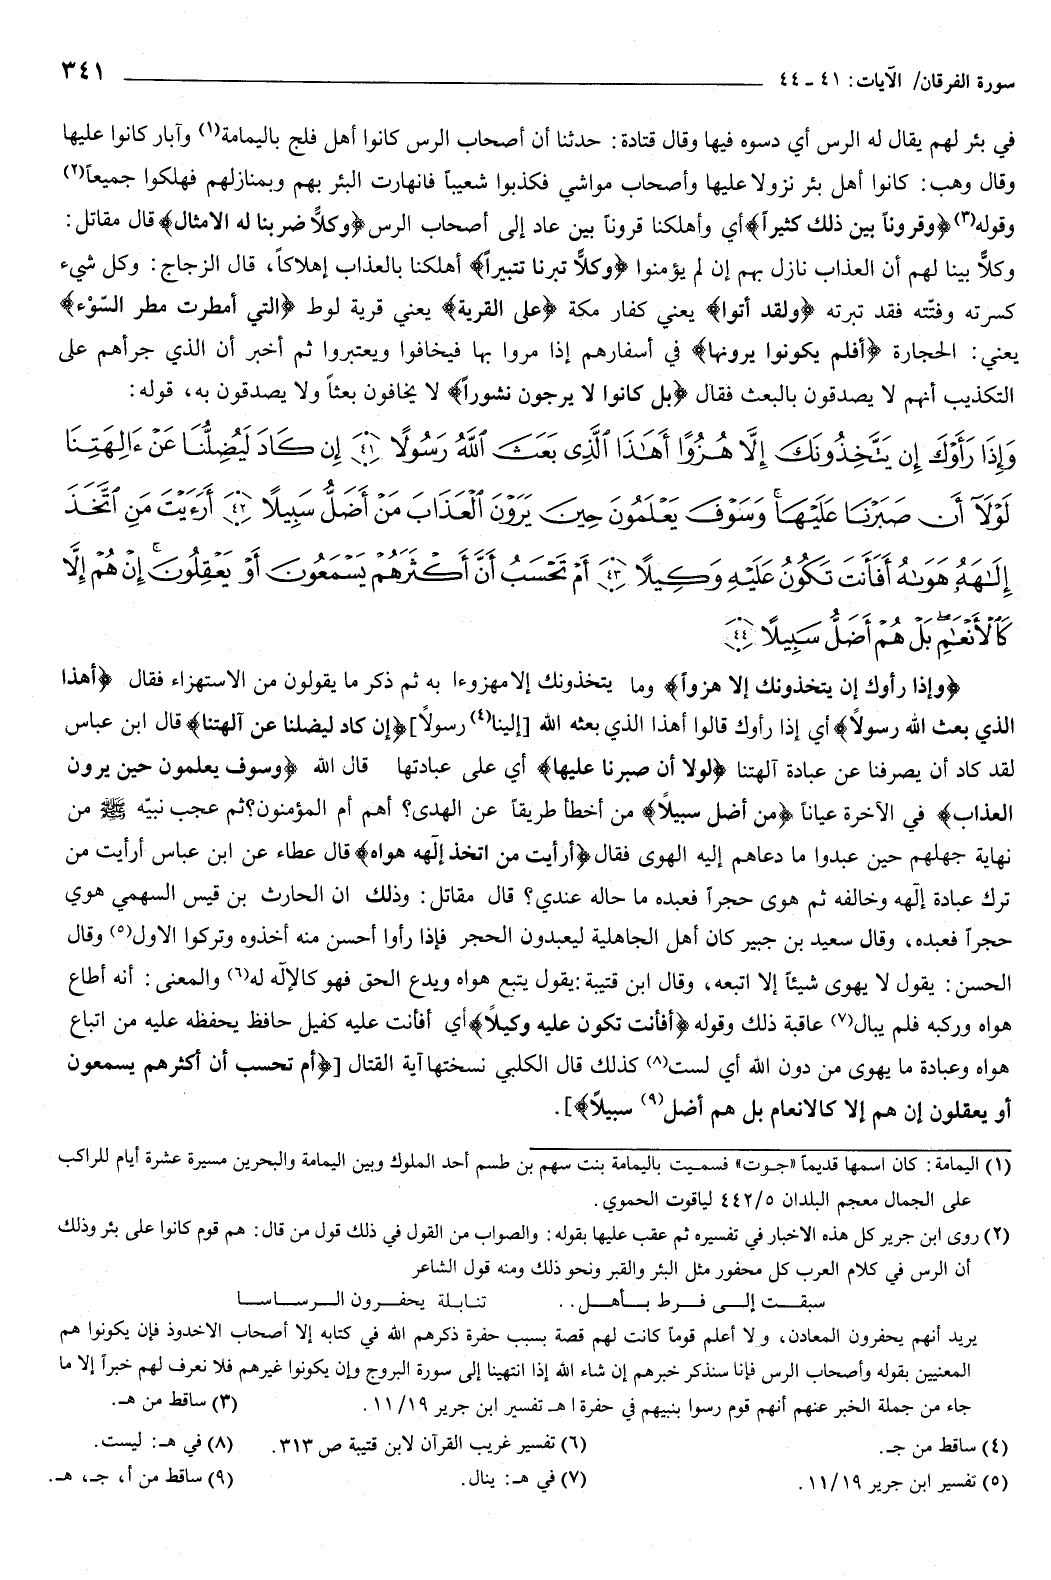 سورة الفرقان/ الآيات: ٤١ - ٤٤
٣٤١
في بئر لهم يقال له الرس أي دسوه فيها وقال قتادة: حدثنا أن أصحاب الرس كانوا أهل فلج باليمامة(١) وآبار كانوا عليها
وقال وهب: كانوا أهل بئر نزولا عليها وأصحاب مواشي فكذبوا شعيباً فانهارت البئر بهم وبمنازلهم فهلكوا جميعاً(٢)
وقوله(٣) ﴿وقروناً بين ذلك كثيراً﴾ أي وأهلكنا قروناً بين عاد إلى أصحاب الرس ﴿وكلاًّ ضربنا له الامثال﴾ قال مقاتل:
وكلاًّ بينا لهم أن العذاب نازل بهم إن لم يؤمنوا ﴿وكلاًّ تبرنا تتبيراً﴾ أهلكنا بالعذاب إهلاكاً، قال الزجاج: وكل شيء
كسرته وفتّته فقد تبرته ﴿ولقد أتوا﴾ يعني كفار مكة ﴿على القرية﴾ يعني قرية لوط ﴿التي أمطرت مطر السّوْء﴾
يعني: الحجارة ﴿أفلم يكونوا يرونها﴾ في أسفارهم إذا مروا بها فيخافوا ويعتبروا ثم أخبر أن الذي جرأهم على
التكذيب أنهم لا يصدقون بالبعث فقال ﴿بل كانوا لا يرجون نشوراً﴾ لا يخافون بعثاً ولا يصدقون به، قوله:
وَإِذَا رَأَوْكَ إِن يَتَّخِذُونَكَ إِلَّا هُزُوًا أَهَٰذَا ٱلَّذِى بَعَثَ ٱللَّهُ رَسُولًا ﴿٤١﴾ إِن كَادَ لَيُضِلُّنَا عَنْ ءَالِهَتِنَا
لَوْلَآ أَن صَبَرْنَا عَلَيْهَا ۚ وَسَوْفَ يَعْلَمُونَ حِينَ يَرَوْنَ ٱلْعَذَابَ مَنْ أَضَلُّ سَبِيلًا ﴿٤٢﴾ أَرَءَيْتَ مَنِ ٱتَّخَذَ
إِلَٰهَهُۥ هَوَىٰهُ أَفَأَنتَ تَكُونُ عَلَيْهِ وَكِيلًا ﴿٤٣﴾ أَمْ تَحْسَبُ أَنَّ أَكْثَرَهُمْ يَسْمَعُونَ أَوْ يَعْقِلُونَ ۚ إِنْ هُمْ إِلَّا
كَٱلْأَنْعَٰمِ ۖ بَلْ هُمْ أَضَلُّ سَبِيلًا ﴿٤٤﴾
﴿وإذا رأوك إن يتخذونك إلا هزواً﴾ وما يتخذونك إلا مهزوءا به ثم ذكر ما يقولون من الاستهزاء فقال ﴿أهذا
الذي بعث الله رسولاً﴾ أي إذا رأوك قالوا أهذا الذي بعثه الله [إلينا(٤) رسولاً] ﴿إن كاد ليضلنا عن آلهتنا﴾ قال ابن عباس
لقد كاد أن يصرفنا عن عبادة آلهتنا ﴿لولا أن صبرنا عليها﴾ أي على عبادتها قال الله ﴿وسوف يعلمون حين يرون
العذاب﴾ في الآخرة عياناً ﴿من أضل سبيلاً﴾ من أخطأ طريقاً عن الهدى؟ أهم أم المؤمنون؟ ثم عجب نبيّه ﷺ من
نهاية جهلهم حين عبدوا ما دعاهم إليه الهوى فقال ﴿أرأيت من اتخذ إلّهه هواه﴾ قال عطاء عن ابن عباس أرأيت من
ترك عبادة إلّهه وخالفه ثم هوى حجراً فعبده ما حاله عندي؟ قال مقاتل: وذلك ان الحارث بن قيس السهمي هوي
حجراً فعبده، وقال سعيد بن جبير كان أهل الجاهلية ليعبدون الحجر فإذا رأوا أحسن منه أخذوه وتركوا الاول(٥) وقال
الحسن: يقول لا يهوى شيئاً إلا اتبعه، وقال ابن قتيبة: يقول يتبع هواه ويدع الحق فهو كالإلّه له(٦) والمعنى: أنه أطاع
هواه وركبه فلم يبال(٧) عاقبة ذلك وقوله ﴿أفأنت تكون عليه وكيلاً﴾ أي أفأنت عليه كفيل حافظ يحفظه عليه من اتباع
هواه وعبادة ما يهوى من دون الله أي لست(٨) كذلك قال الكلبي نسختها آية القتال [﴿أم تحسب أن أكثرهم يسمعون
أو يعقلون إن هم إلا كالانعام بل هم أضل(٩) سبيلاً﴾].
(١) اليمامة: كان اسمها قديماً «جوت» فسميت باليمامة بنت سهم بن طسم أحد الملوك وبين اليمامة والبحرين مسيرة عشرة أيام للراكب
على الجمال معجم البلدان ٤٤٢/٥ لياقوت الحموي.
(٢) روى ابن جرير كل هذه الاخبار في تفسيره ثم عقب عليها بقوله: والصواب من القول في ذلك قول من قال: هم قوم كانوا على بئر وذلك
أن الرس في كلام العرب كل محفور مثل البئر والقبر ونحو ذلك ومنه قول الشاعر
سبقـت إلـى فـرط بـأهـل.. تنـابلـة يحفـرون الـرسـاسـا
يريد أنهم يحفرون المعادن، ولا أعلم قوماً كانت لهم قصة بسبب حفرة ذكرهم الله في كتابه إلا أصحاب الاخدوذ فإن يكونوا هم
المعنيين بقوله وأصحاب الرس فإنا سنذكر خبرهم إن شاء الله إذا انتهينا إلى سورة البروج وإن يكونوا غيرهم فلا نعرف لهم خبراً إلا ما
جاء من جملة الخبر عنهم أنهم قوم رسوا بنبيهم في حفرة ا هـ تفسير ابن جرير ١١/١٩. (٣) ساقط من هـ.
(٤) ساقط من جـ. (٦) تفسير غريب القرآن لابن قتيبة ص ٣١٣. (٨) في هـ: ليست.
(٥) تفسير ابن جرير ١١/١٩. (٧) في هـ: ينال. (٩) ساقط من أ، جـ، هـ.